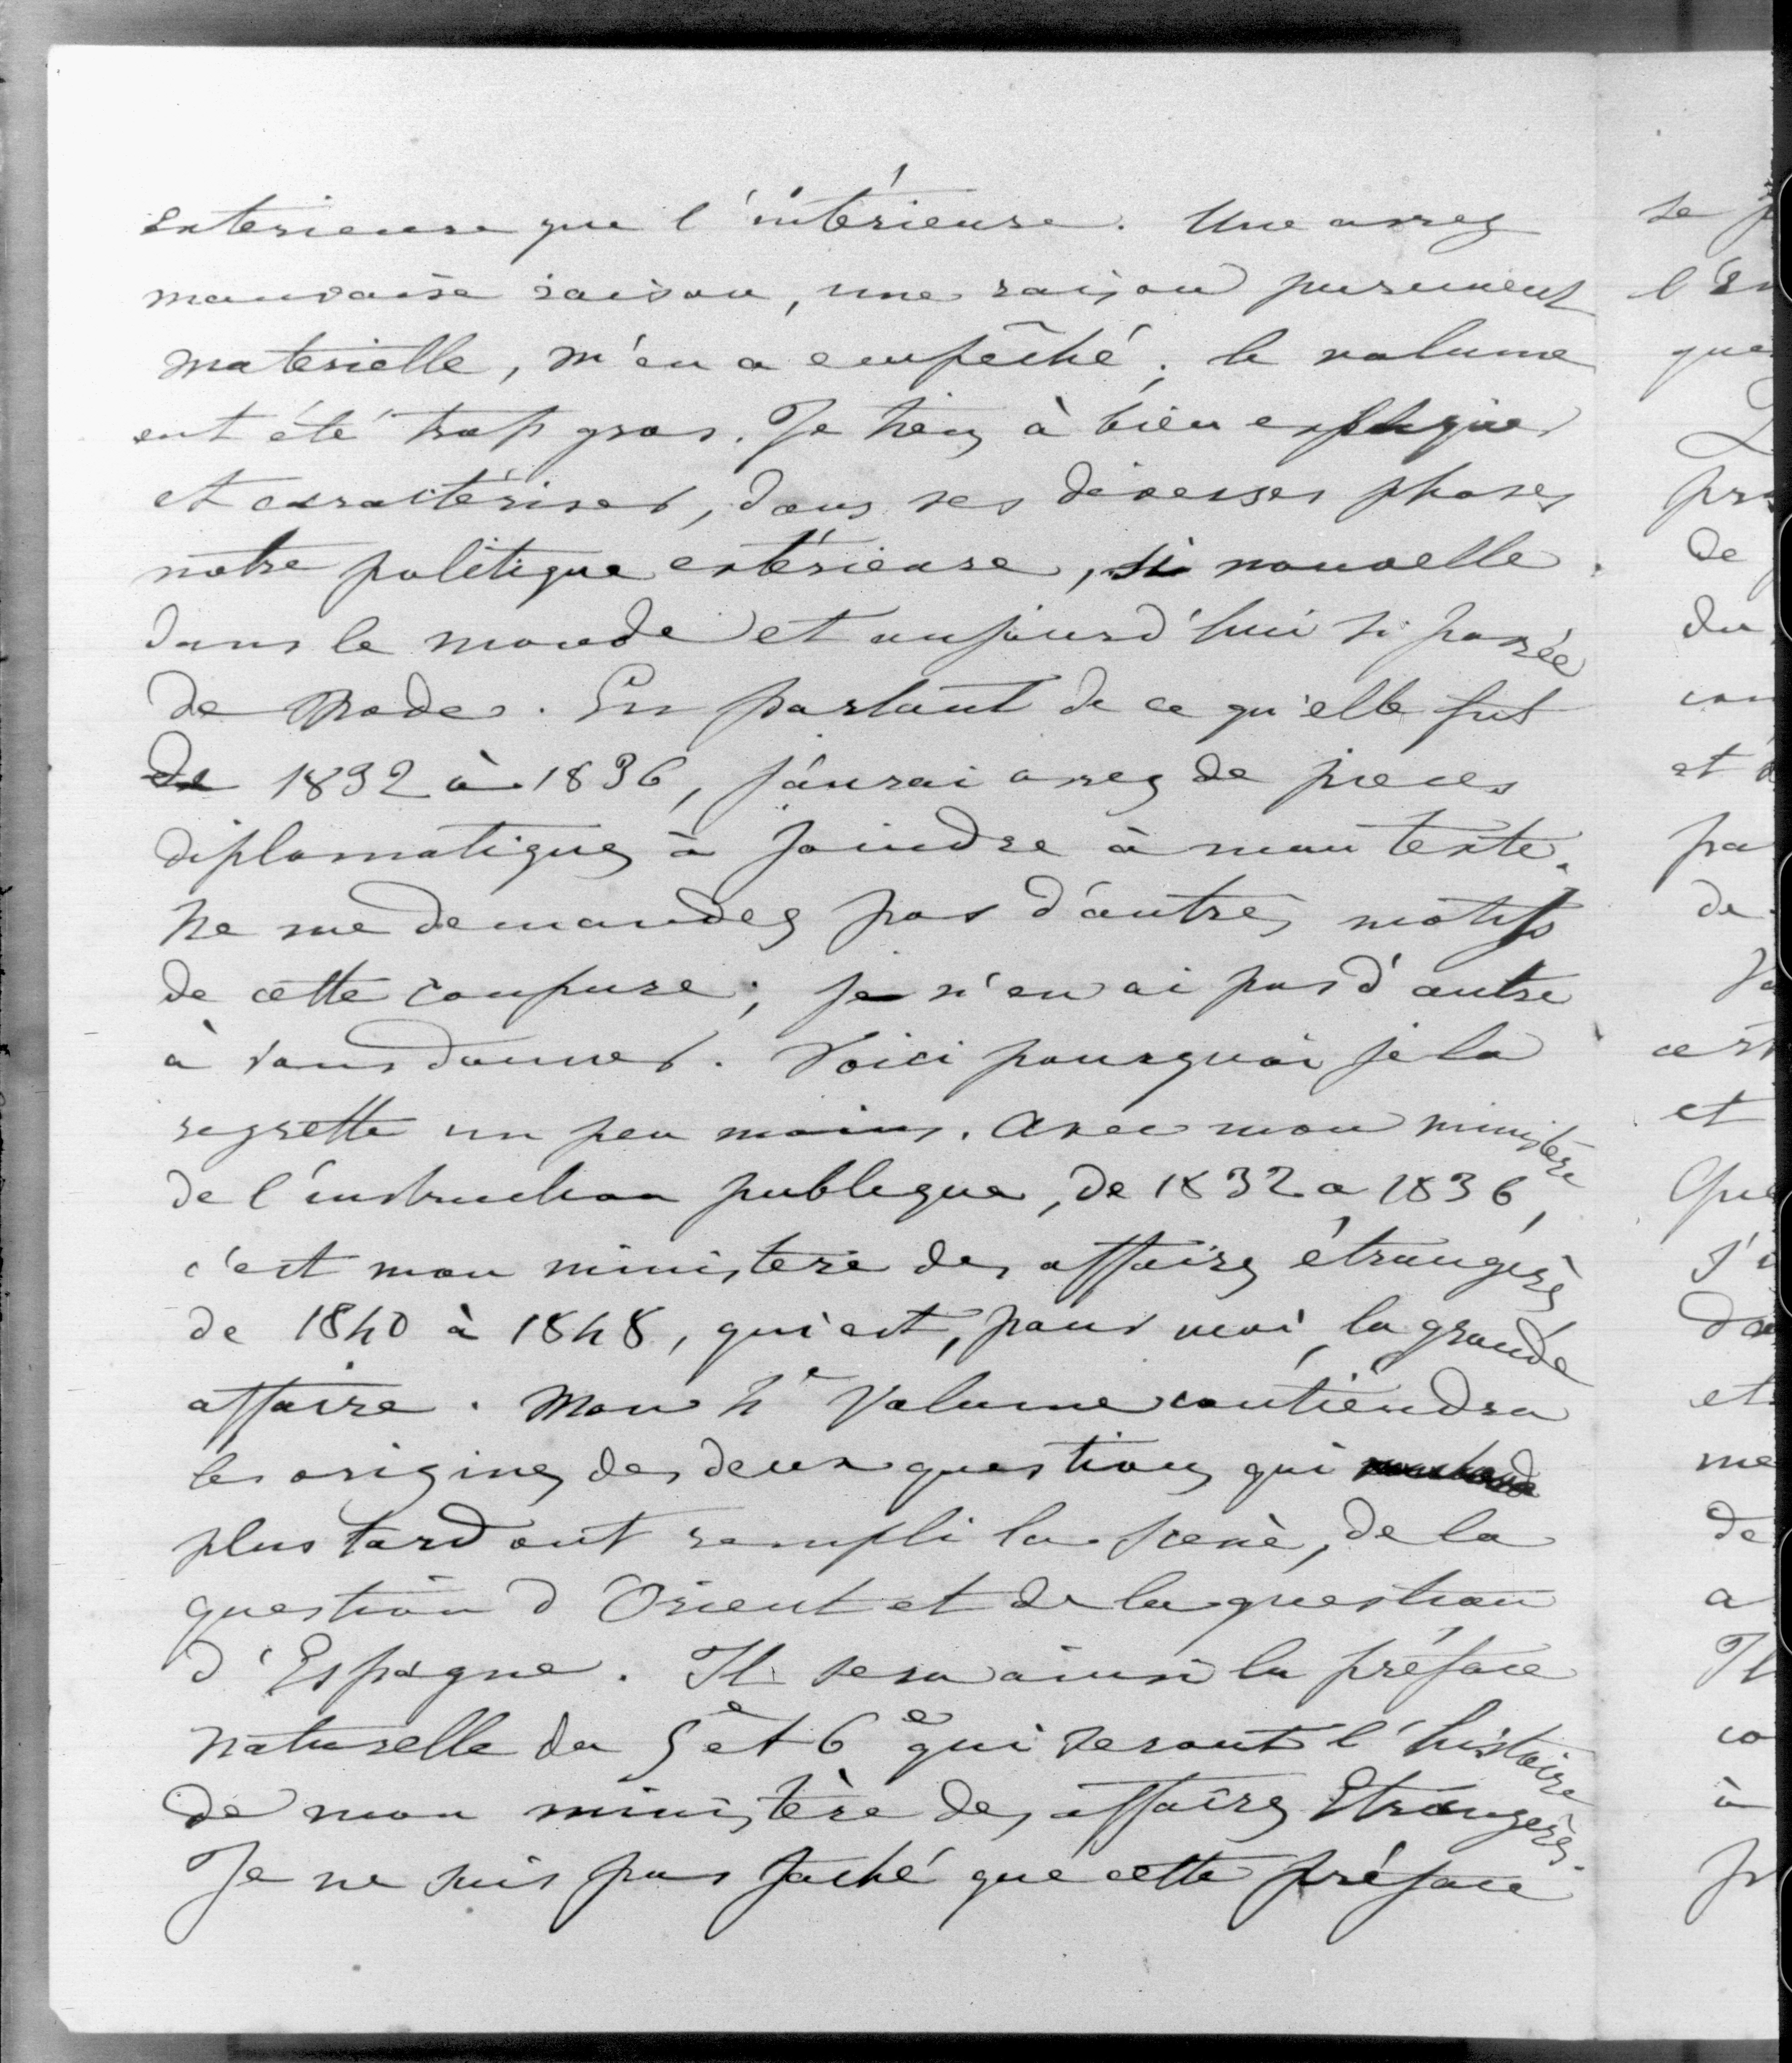 exterieure que l'intérieure. Une assez
mauvaise raison, une raison purement
materielle, m'en a empêché; le volume
eut été trop gros. Je tiens à bien expliquer
et caractériser, dans ses diverses phases
notre politique extérieure, si nouvelle
dans le monde et aujourd'hui si passée
de mode. En partant de ce qu'elle fut
de 1832 à 1836, j'aurai assez de pieces
diplomatiques à joindre à mon texte.
Ne me demandez pas d'autres motifs
de cette coupure; je n'en ai pas d'autre
à vous donner. Voici pourquoi je la
regrette un peu moins. Avec mon ministère
de l'instruction publique, de 1832 a 1836,
c'est mon ministere des affaires étrangères
de 1840 à 1848, qui est, pour moi, la grande
affaire. Mon 4e Volume contiendra
les origines des deux questions qui
plus tard ont rempli la scene, de la
question d'Orient et de la question
d'Espagne. Il sera ainsi la préface
naturelle du 5e et 6e qui seront l'histoire
de mon ministère des affaires Etrangères.
Je ne suis pas faché que cette préface
se
l'en
que
de
du
et
pa
de
et
Que
et
me
de
a
Il
co
à